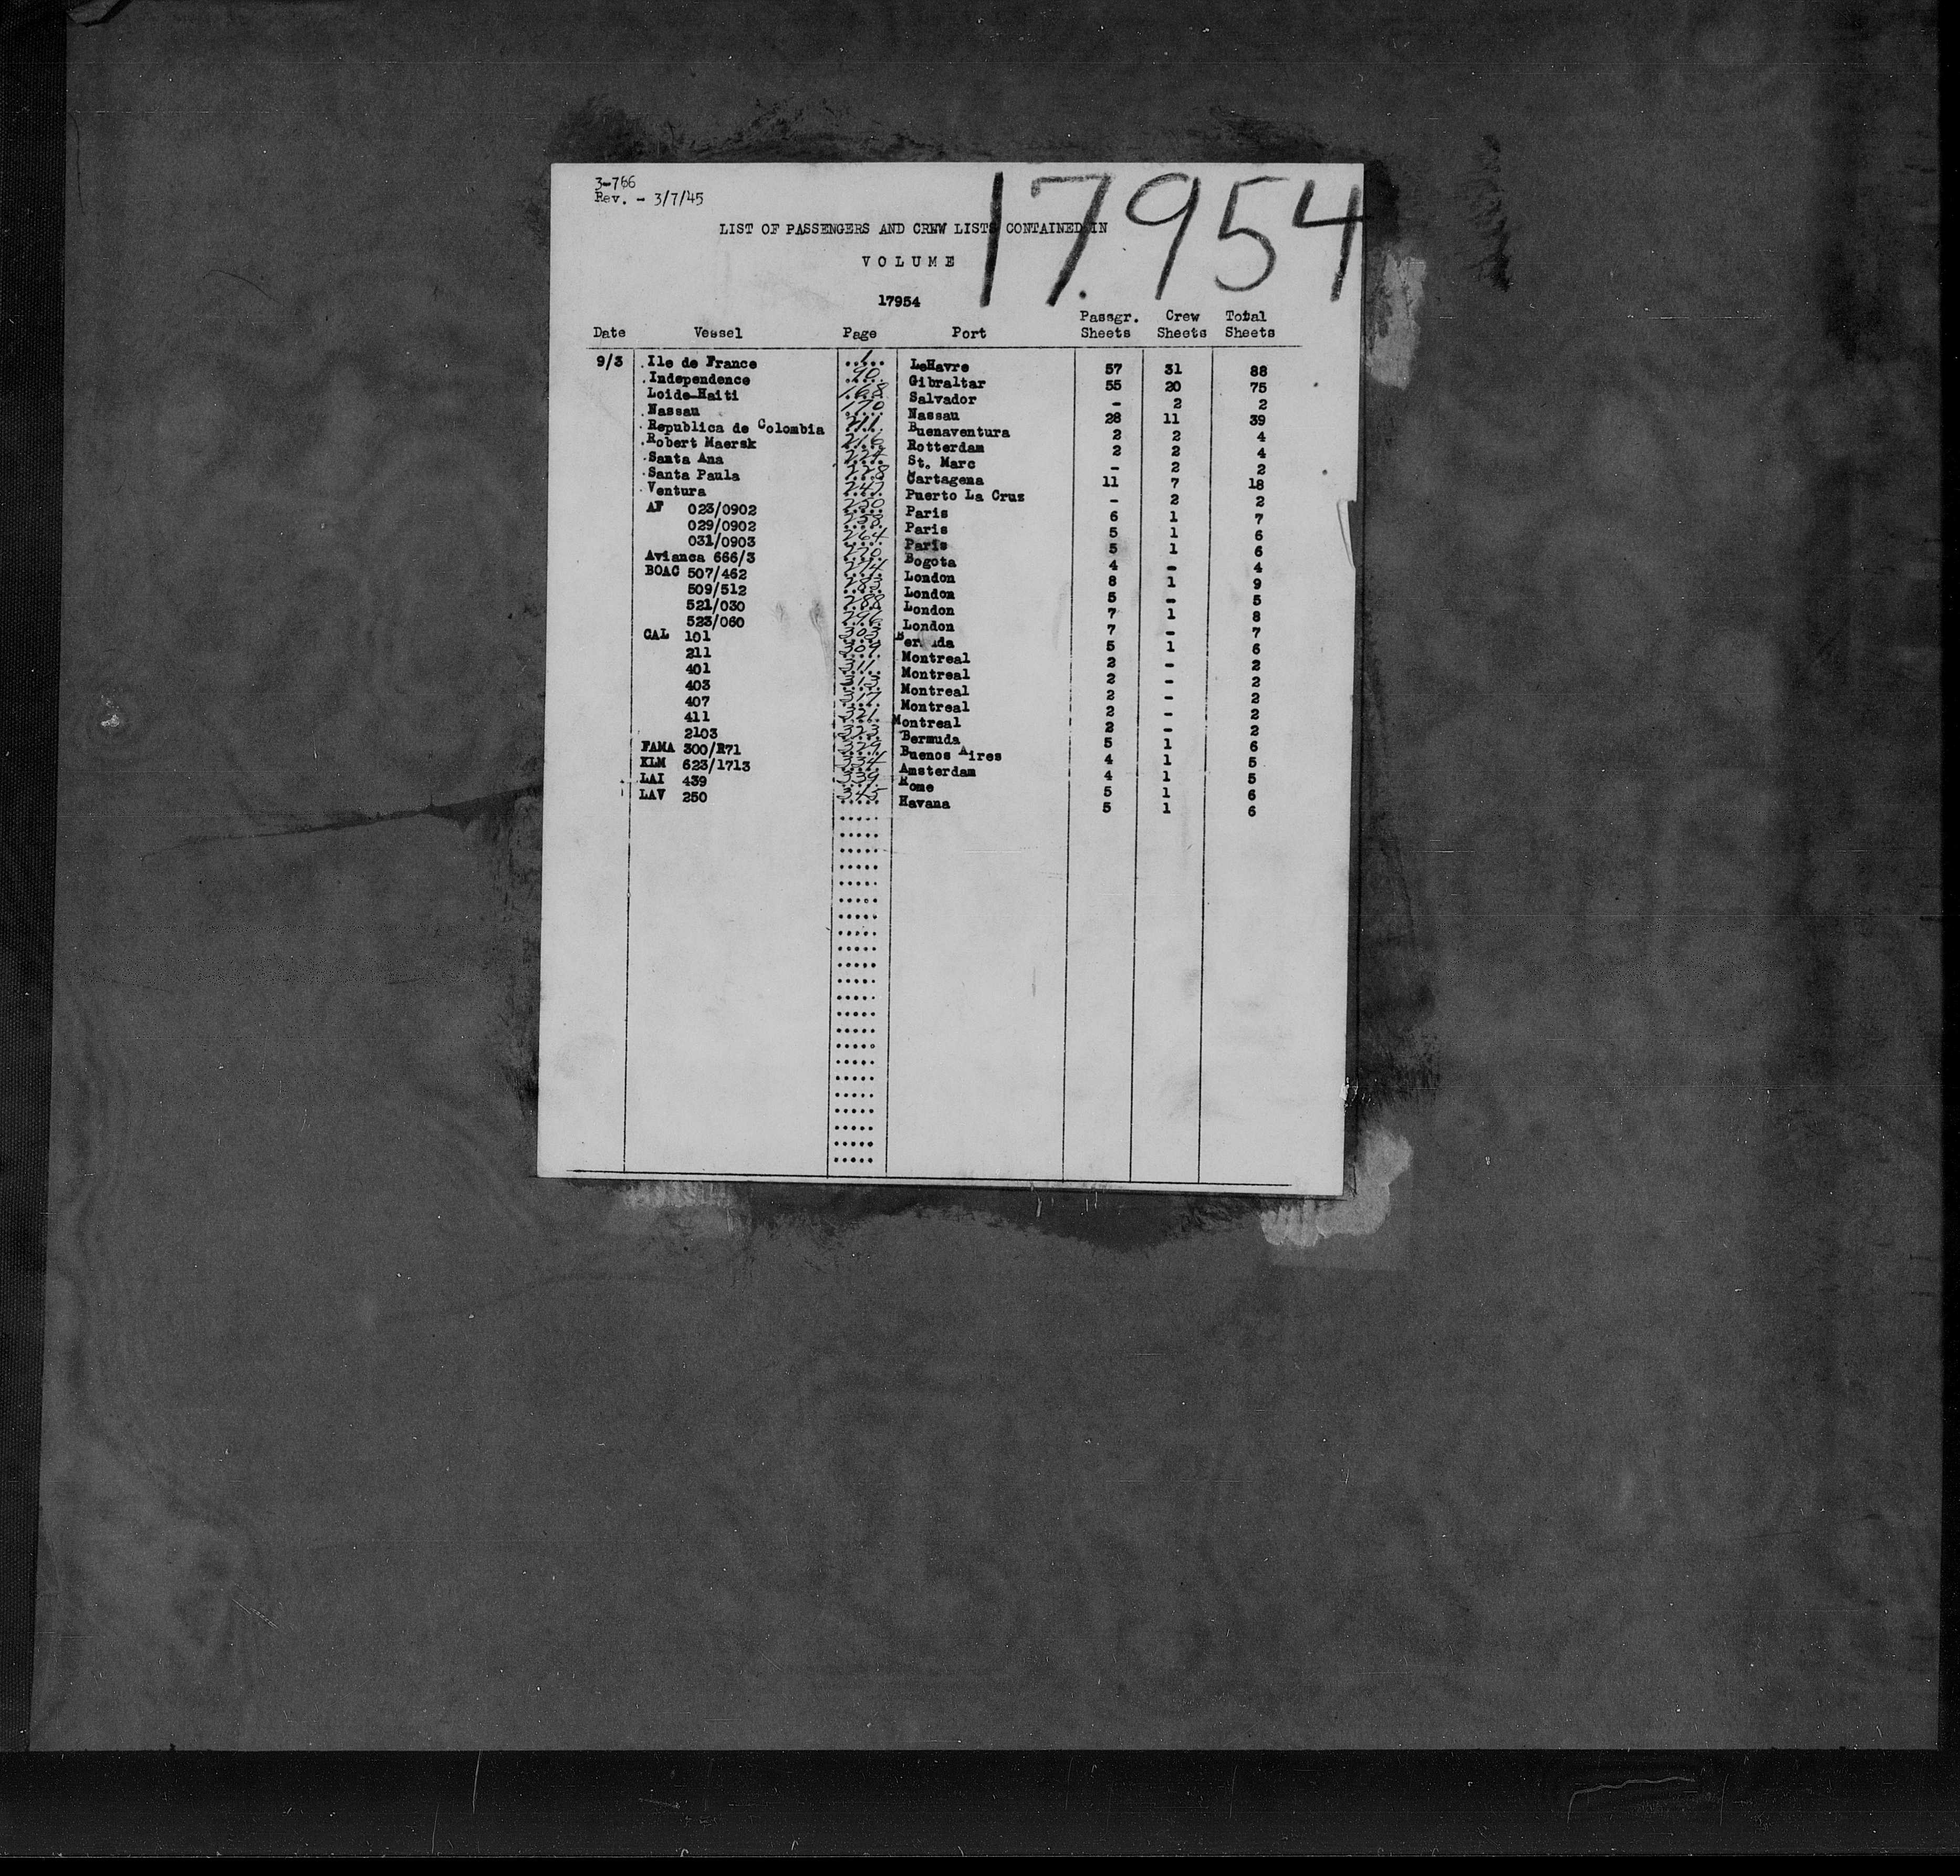 3-766
Rev. - 3/7/45
17954
LIST OF PASSENGERS AND CREW LISTS CONTAINED IN
VOLUME
17954
Date Vessel Page Port Passgr. Sheets Crew Sheets Total Sheets
9/3 Ile de France 1 LeHavre 57 31 88
Independence 90 Gibraltar 55 20 75
Loide-Haiti 168 Salvador - 2 2
Nassau 170 Nassau 28 11 39
Republica de Colombia 211 Buenaventura 2 2 4
Robert Maersk 216 Rotterdam 2 2 4
Santa Ana 224 St. Marc - 2 2
Santa Paula 228 Cartagena 11 7 18
Ventura 247 Puerto La Cruz - 2 2
AF 023/0902 250 Paris 6 1 7
029/0902 258 Paris 5 1 6
031/0903 264 Paris 5 1 6
Avianca 666/3 270 Bogota 4 - 4
BOAC 507/462 274 London 8 1 9
509/512 283 London 5 - 5
521/030 288 London 7 1 8
523/060 296 London 7 - 7
CAL 101 303 5 1 6
211 309 Montreal 2 - 2
401 311 Montreal 2 - 2
403 313 Montreal 2 - 2
407 317 Montreal 2 - 2
411 321 Montreal 2 - 2
2103 323 Bermuda 5 1 6
FAMA 300/R71 329 Buenos Aires 4 1 5
KLM 623/1713 334 Amsterdam 4 1 5
LAI 439 339 Rome 5 1 6
LAV 250 345 Havana 5 1 6